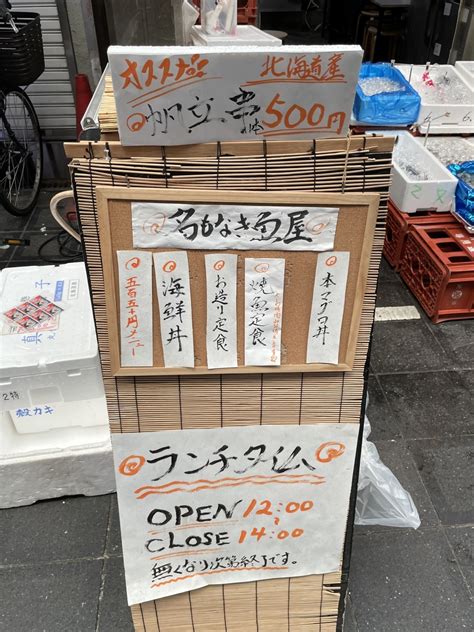 オススメ!!
北海道産
帆立串 1本 500円
名もなき魚屋
五百五十円メニュー
海鮮丼
お造り定食
焼魚定食
本マグロ丼
ランチタイム
OPEN 12:00〜
CLOSE 14:00
無くなり次第終了です。
殻カキ